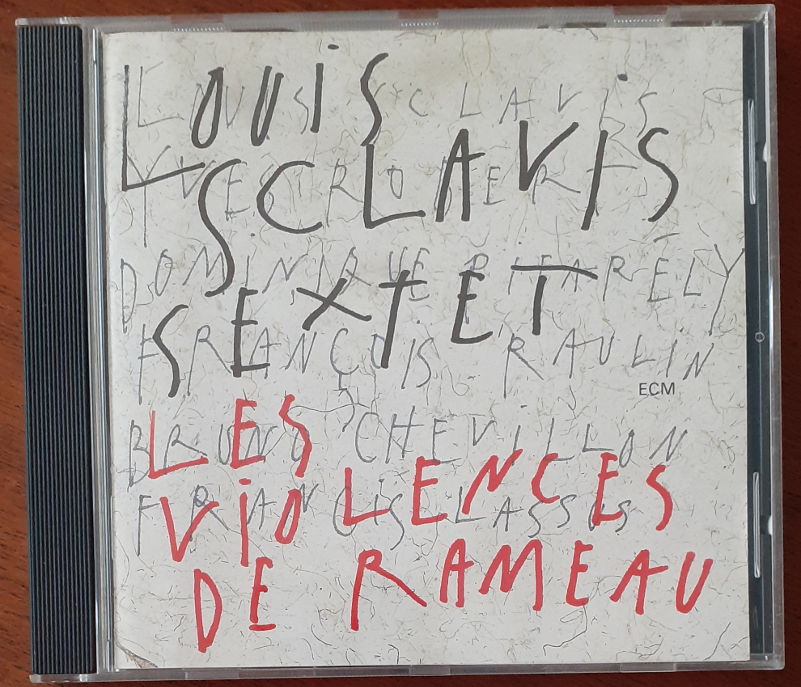 LOUIS
SCLAVIS
SEXTET
LOUIS SCLAVIS
YVES ROBERT
DOMINIQUE PIFARÉLY
FRANÇOIS RAULIN
BRUNO CHEVILLON
FRANCIS LASSUS
ECM
LES
VIOLENCES
DE RAMEAU